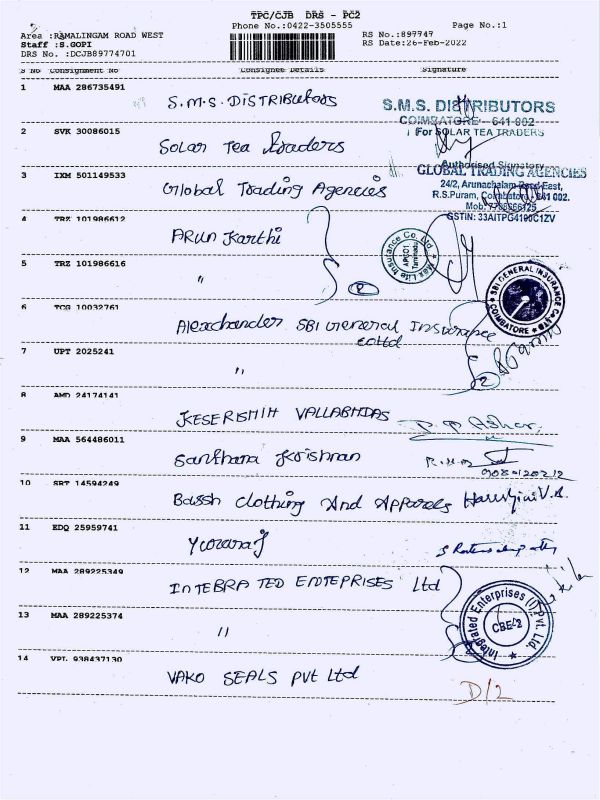 TPC/CJB DRS - PC2
Phone No.:0422-3505555 Page No.:1
Area :RAMALINGAM ROAD WEST RS No.:897747
Staff :S.GOPI RS Date:26-Feb-2022
DRS No. :DCJB89774701
S No Consignment No Consignee Details Signature
1 MAA 286735491 S.M.S. DISTRIBUTORS
S.M.S. DISTRIBUTORS
COIMBATORE - 641 002
2 SVK 30086015 Solar Tea Traders
For SOLAR TEA TRADERS
Authorised Signatory
3 IXM 501149533 Global Trading Agencies
GLOBAL TRADING AGENCIES
24/2, Arunachalam Road East,
R.S.Puram, Coimbatore - 641 002.
Mob:
GSTIN: 33AITPG4190C1ZV
4 TRZ 101986612 Arun Karthi
Max Life Insurance Co. Ltd.
Tamilnadu
5 TRZ 101986616 "
2
SBI GENERAL INSURANCE CO. LTD.
COIMBATORE
6 TCG 10032761 Alexchander SBI General Insurance
coltd
7 UPT 2025241 "
2
8 AMD 24174141 KESERISMIH VALLABHDAS
9 MAA 564486011 Santhana Krishnan
10 SRT 14594249 Bassh Clothing And Apparels
11 EDQ 25959741 Yuvaraj
12 MAA 289225349 INTEBRA TED ENTEPRISES Ltd
Integrated Enterprises (I) Pvt. Ltd.
CBE/2
13 MAA 289225374 "
14 VPL 938437130 VAKO SEALS PVT Ltd
D/2